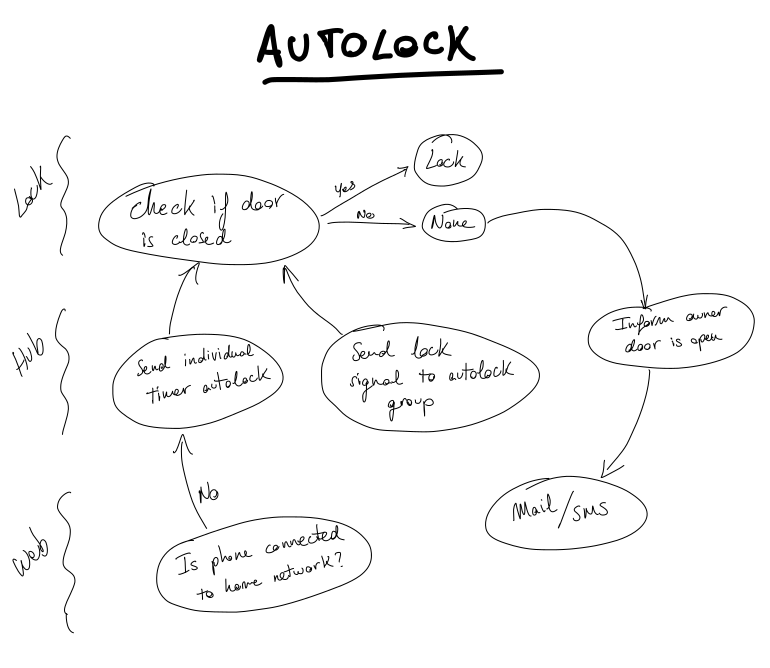 AUTOLOCK
Lock
Check if door
is closed
Yes
No
Lock
None
Hub
Send individual
timer autolock
Send lock
signal to autolock
group
Inform owner
door is open
No
Web
Is phone connected
to home network?
Mail/SMS